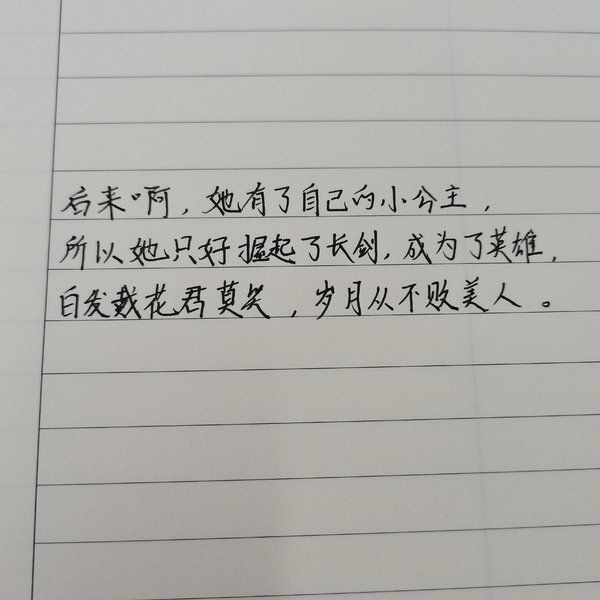 后来啊，她有了自己的小公主，
所以她只好握起了长剑，成为了英雄，
白发戴花君莫笑，岁月从不败美人。